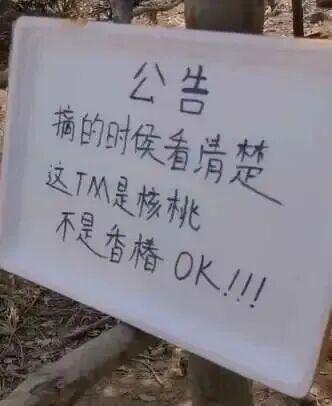 公告
摘的时候看清楚
这TM是核桃
不是香椿 OK!!!